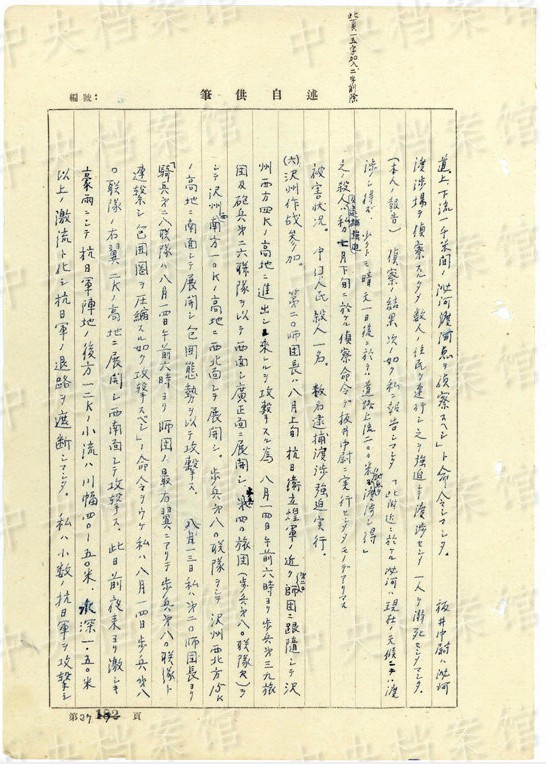 此頁一五字加入、二字削除
筆供自述
編號：
道上下流一千米間ノ沁河渡河点ヲ偵察スベシ」ト命令シマシタ。 板井中尉ハ沁河
渡渉場ヲ偵察スルタメ数人ノ住民ヲ連行シ之ヲ強迫シテ渡渉セシメ一人ヲ溺死セシメマシタ。
(本人ノ報告) 偵察ノ結果次ノ如ク私ニ報告シマシタ「此附近ニ於ケル沁河ハ現在ノ天候ニテハ渡
渉シ得ズ 少クトモ晴天一日後ニ於テ道路上流二〇〇米附近ハ渡渉シ得」
之ノ殺人及逮捕強迫ハ私ガ七月下旬ニ於ケル偵察命令デ板井中尉ニ実行セシメタモノデアリマス
被害状況。 中国人民殺人一名。 数名逮捕渡渉強迫実行。
(六)沢州作戦参加。 第二〇師団長ハ八月上旬抗日衛立煌軍ノ近ク第二〇師団ニ跟随シテ沢
州西方四Kノ高地ニ進出シ来レルヲ攻撃スル為 八月一四日午前六時ヨリ歩兵第三九旅
団及砲兵第二六聯隊ヲ以テ西南ニ廣正面ニ展開シ 第四〇旅団(歩兵第八〇聯隊欠)ヲ
シテ沢州西南方一〇Kノ高地ニ西北面シテ展開シ、歩兵第八〇聯隊ヲシテ沢州西北方一五K
ノ高地ニ南面シテ展開シ包囲態勢ヲ以テ攻撃ス。 八月一三日私ハ第二〇師団長ヨリ
「騎兵第二八聯隊ハ八月一四日午前六時ヨリ師団ノ最右翼ニアリテ歩兵第八〇聯隊ト
連繋シ包囲圏ヲ圧縮スル如ク攻撃スベシ」ノ命令ヲウケ私ハ八月一四日歩兵第八
〇聯隊ノ右翼二Kノ高地ニ展開シ西南面シテ攻撃ス。 此日前夜来ヨリ激シキ
豪雨ニシテ抗日軍陣地ノ後方一二Kノ小流ハ川幅四〇―五〇米、水深一・五〇米
以上ノ激流ト化シ抗日軍ノ退路ヲ遮断シマシタ。 私ハ小数ノ抗日軍ヲ攻撃シ
第29 182 頁